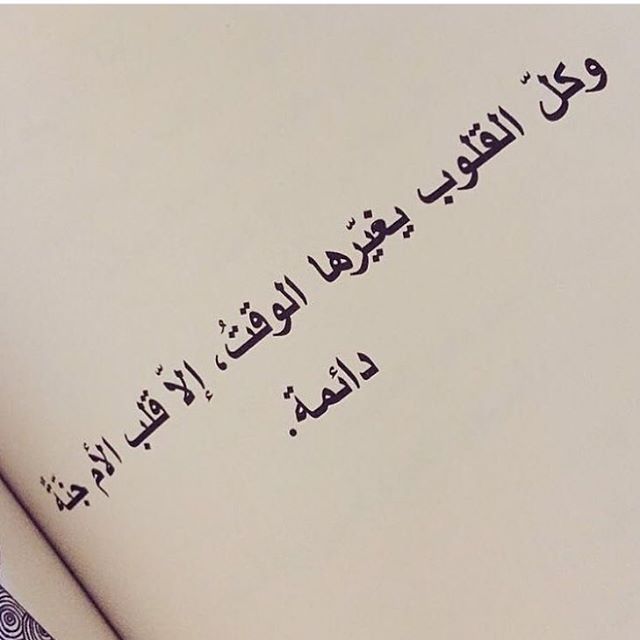 وكلّ القلوب يغيّرها الوقتُ، إلاّ قلب الأم جنّةٌ
دائمة.